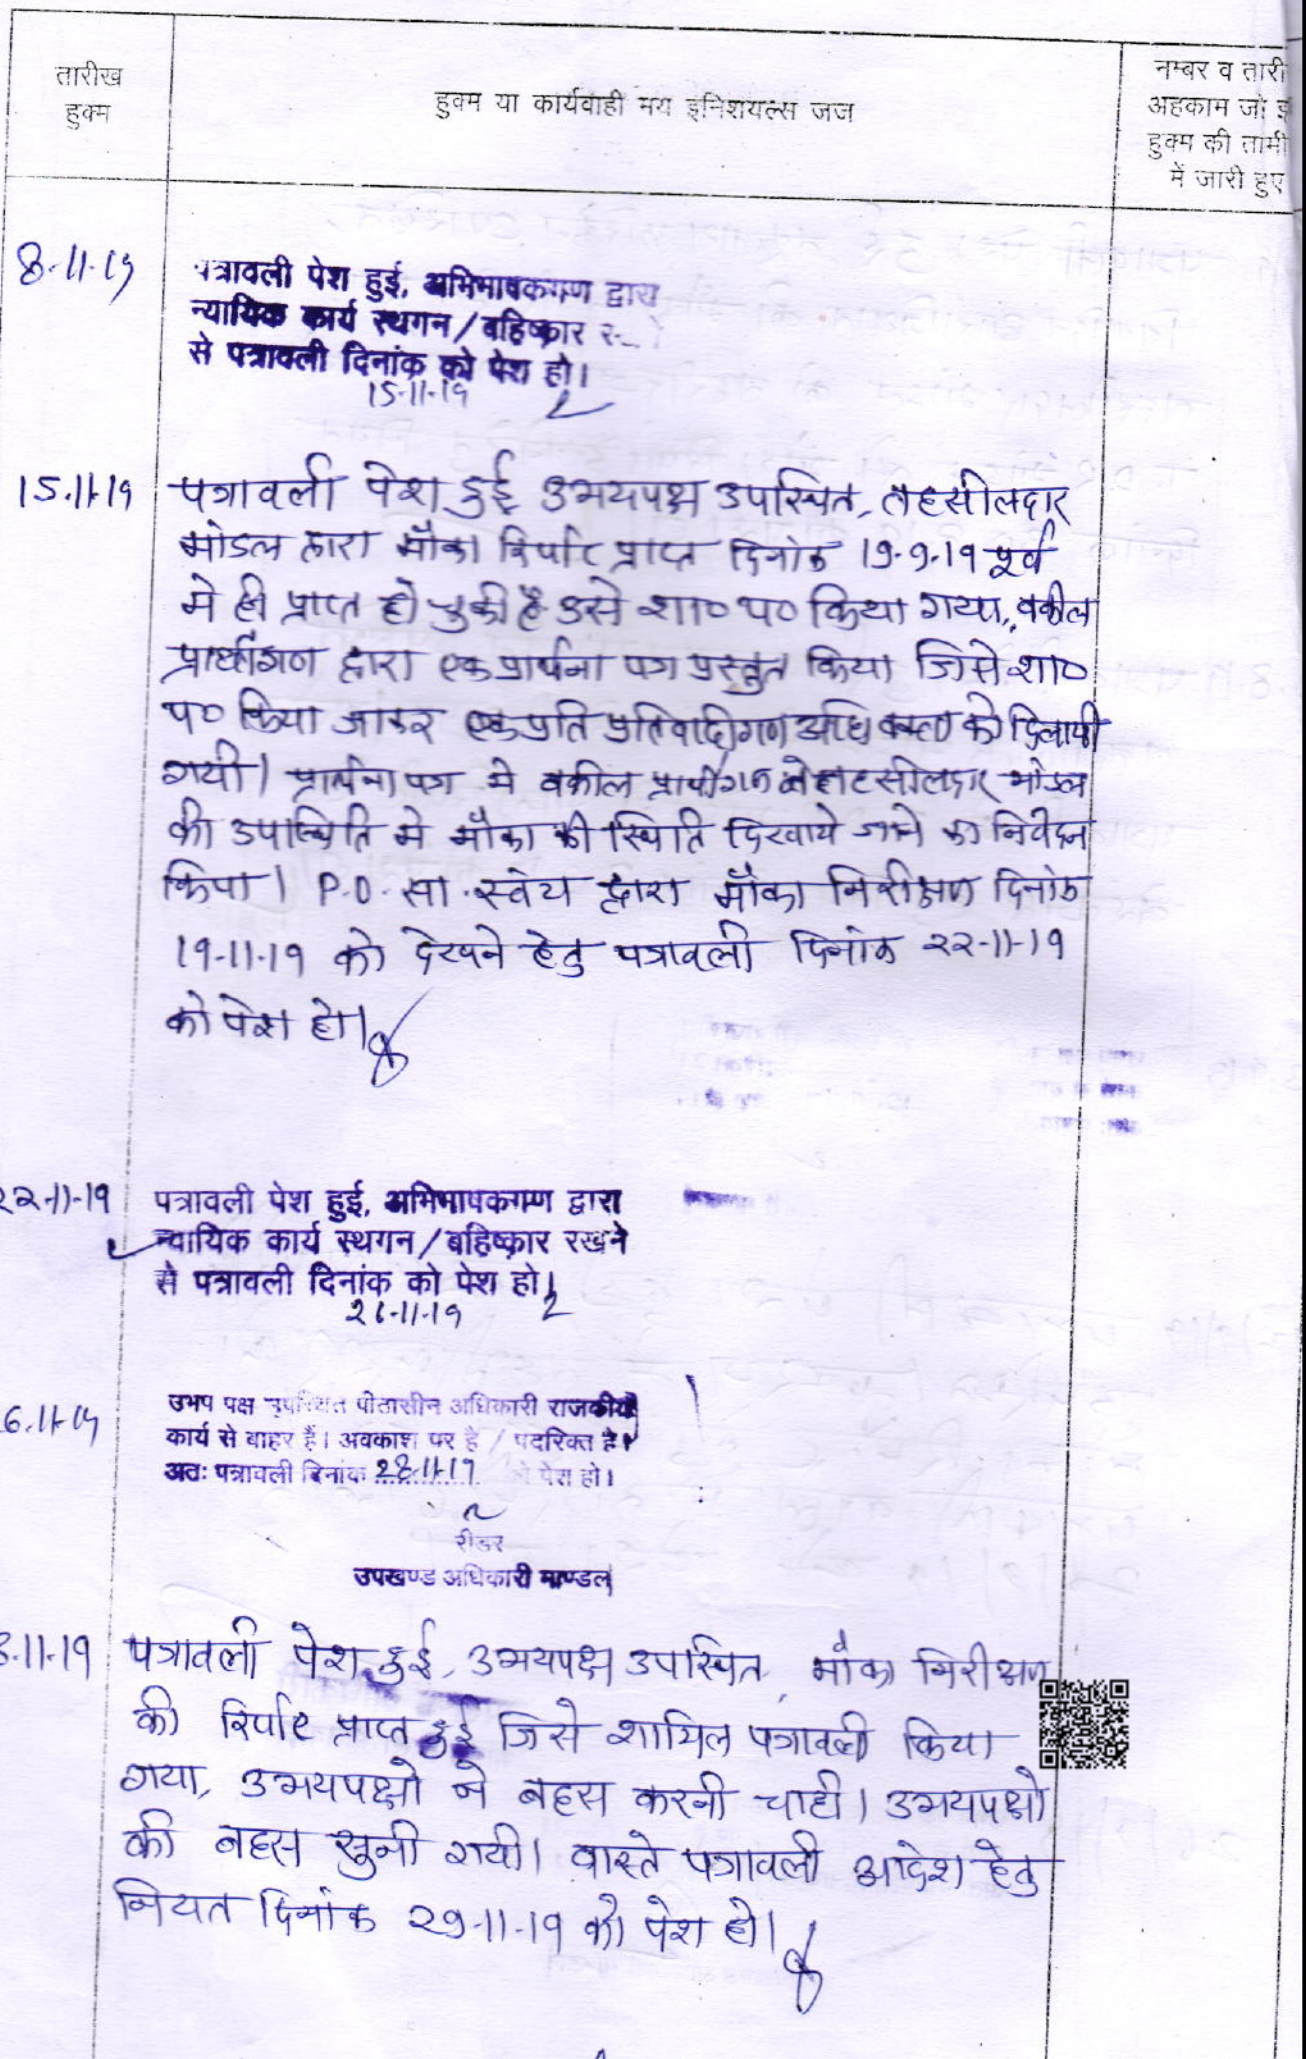 तारीख
हुक्म
हुक्म या कार्यवाही मय इनिशयल्स जज
नम्बर व तारी
अहकाम जो इ
हुक्म की तामी
में जारी हुए
8-11-19
पत्रावली पेश हुई, अभिभाषकगण द्वारा
न्यायिक कार्य स्थगन/बहिष्कार
से पत्रावली दिनांक को पेश हो।
15-11-19
15.11.19 पत्रावली पेश हुई उभयपक्ष उपस्थित, तहसीलदार
मांडल द्वारा मौका रिपोर्ट प्राप्त दिनांक 19-9-19 पूर्व
मे ही प्राप्त हो चुकी है उसे शा० प० किया गया, वकील
प्रार्थीगण द्वारा एक प्रार्थना पत्र प्रस्तुत किया जिसे शा०
प० किया जाकर एक प्रति प्रतिवादीगण अधिवक्ता को दिलायी
गयी। प्रार्थना पत्र मे वकील प्रार्थीगण ने तहसीलदार मांडल
की उपस्थिति मे मौका की स्थिति दिखाये जाने का निवेदन
किया। P.O. सा. स्वंय द्वारा मौका निरीक्षण दिनांक
19-11-19 को देखने हेतु पत्रावली दिनांक २२-11-19
को पेश हो।
२२-11-19
पत्रावली पेश हुई, अभिभाषकगण द्वारा
न्यायिक कार्य स्थगन/बहिष्कार रखने
से पत्रावली दिनांक को पेश हो।
26-11-19
6.11.19
उभय पक्ष उपस्थित पीठासीन अधिकारी राजकीय
कार्य से बाहर हैं। अवकाश पर है / पदरिक्त है।
अतः पत्रावली दिनांक 28.11.19 को पेश हो।
रीडर
उपखण्ड अधिकारी माण्डल
8.11.19 पत्रावली पेश हुई, उभयपक्ष उपस्थित, मौका निरीक्षण
की रिपोर्ट प्राप्त हुई जिसे शामिल पत्रावली किया
गया, उभयपक्षो ने बहस करनी चाही। उभयपक्षो
की बहस सुनी गयी। वास्ते पत्रावली आदेश हेतु
नियत दिनांक २९-11-19 को पेश हो।